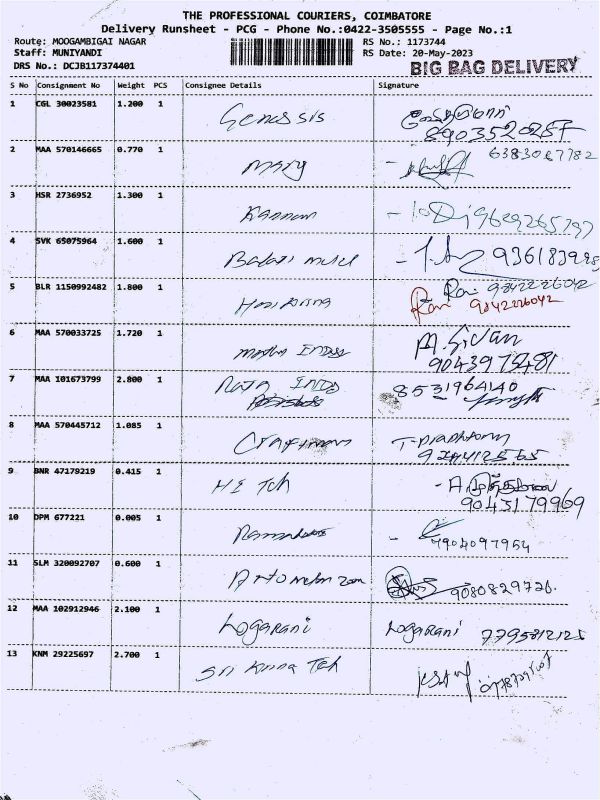 THE PROFESSIONAL COURIERS, COIMBATORE
Delivery Runsheet - PCG - Phone No.:0422-3505555 - Page No.:1
Route: MOOGAMBIGAI NAGAR RS No.: 1173744
Staff: MUNIYANDI RS Date: 20-May-2023
DRS No.: DCJB117374401 BIG BAG DELIVERY
S No Consignment No Weight PCS Consignee Details Signature
1 CGL 30023581 1.200 1
2 MAA 570146665 0.770 1 Mary 6383087782
3 HSR 2736952 1.300 1 Kannan 9629265797
4 SVK 65075964 1.600 1
5 BLR 1150992482 1.800 1 Ravi 9842226042
Ravi 9842226042
6 MAA 570033725 1.720 1 M. Sivan
9043975481
7 MAA 101673799 2.800 1 Raja INDS 8531964140
8 MAA 570445712 1.085 1
9 BNR 47179219 0.415 1 HI Tch
9043179969
10 DPM 677221 0.005 1 7904097954
11 SLM 320092707 0.600 1 9080829726.
12 MAA 102912946 2.100 1 Logarani Logarani 7795812125
13 KNM 29225697 2.700 1 Sri Krina Teh